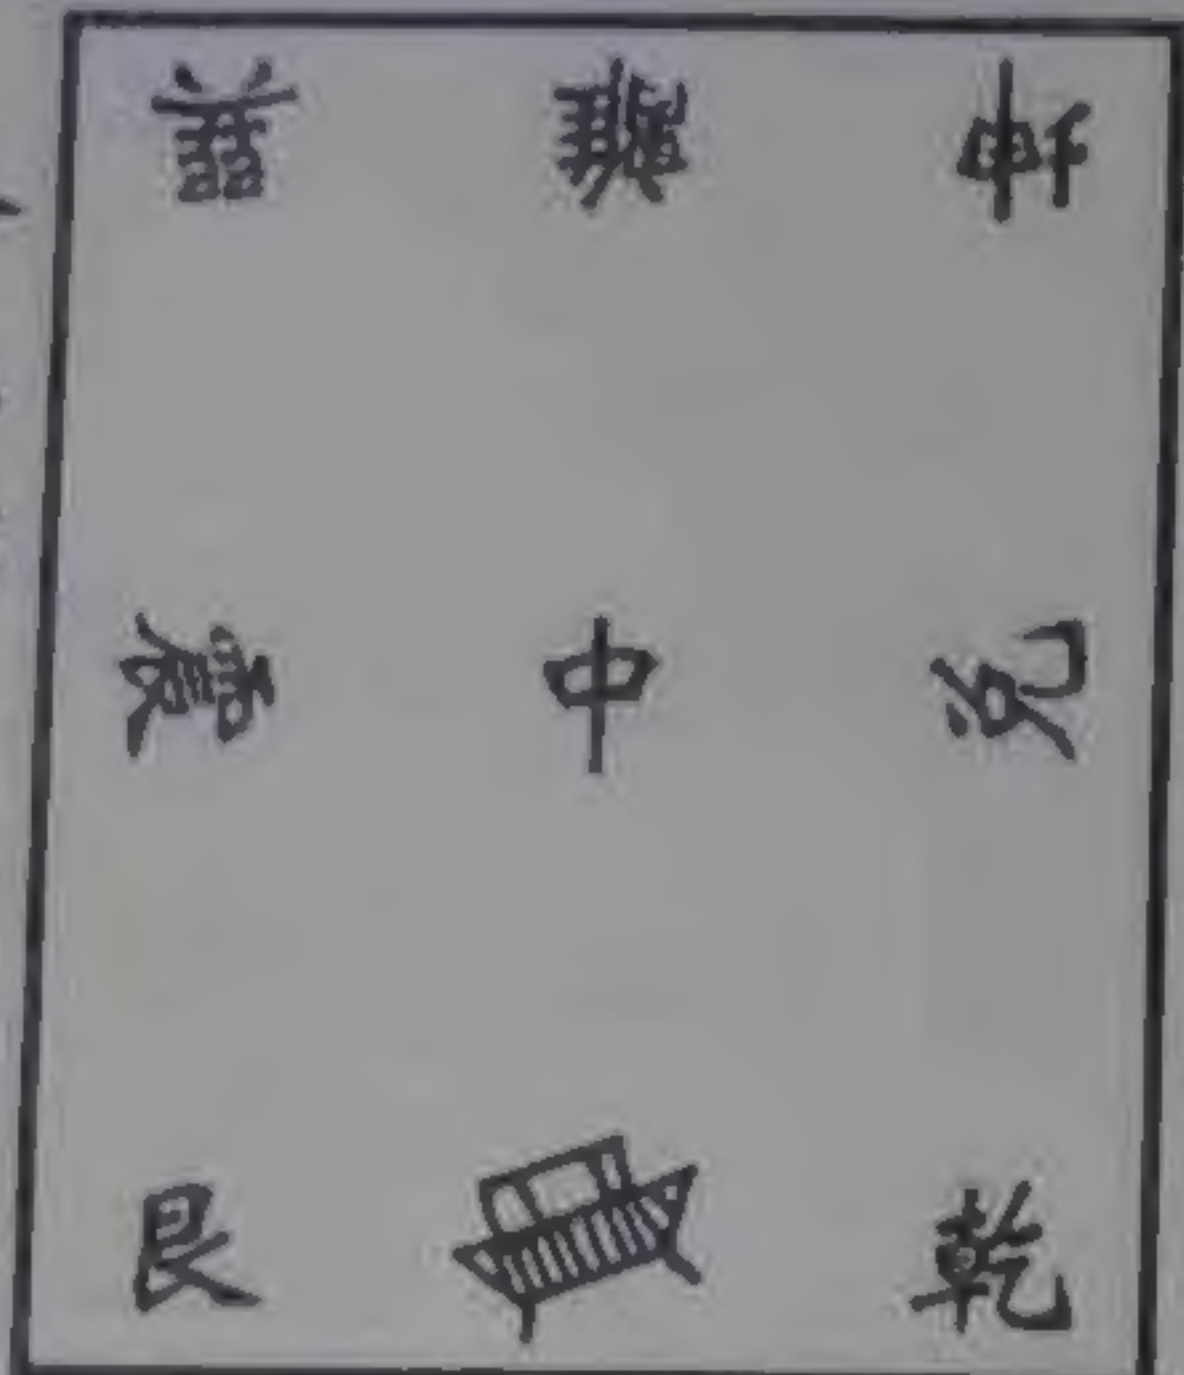 巽 離 坤
震 中 兑
艮 乾